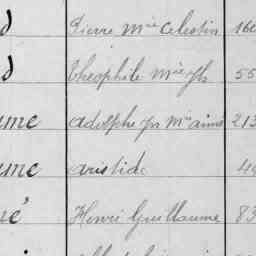 d Pierre Mie Celestin 160
d Théophile Mie Jh 55
ume Adolphe Jn Mie aimé 213
ume aristide 49
né Henri Guillaume 83